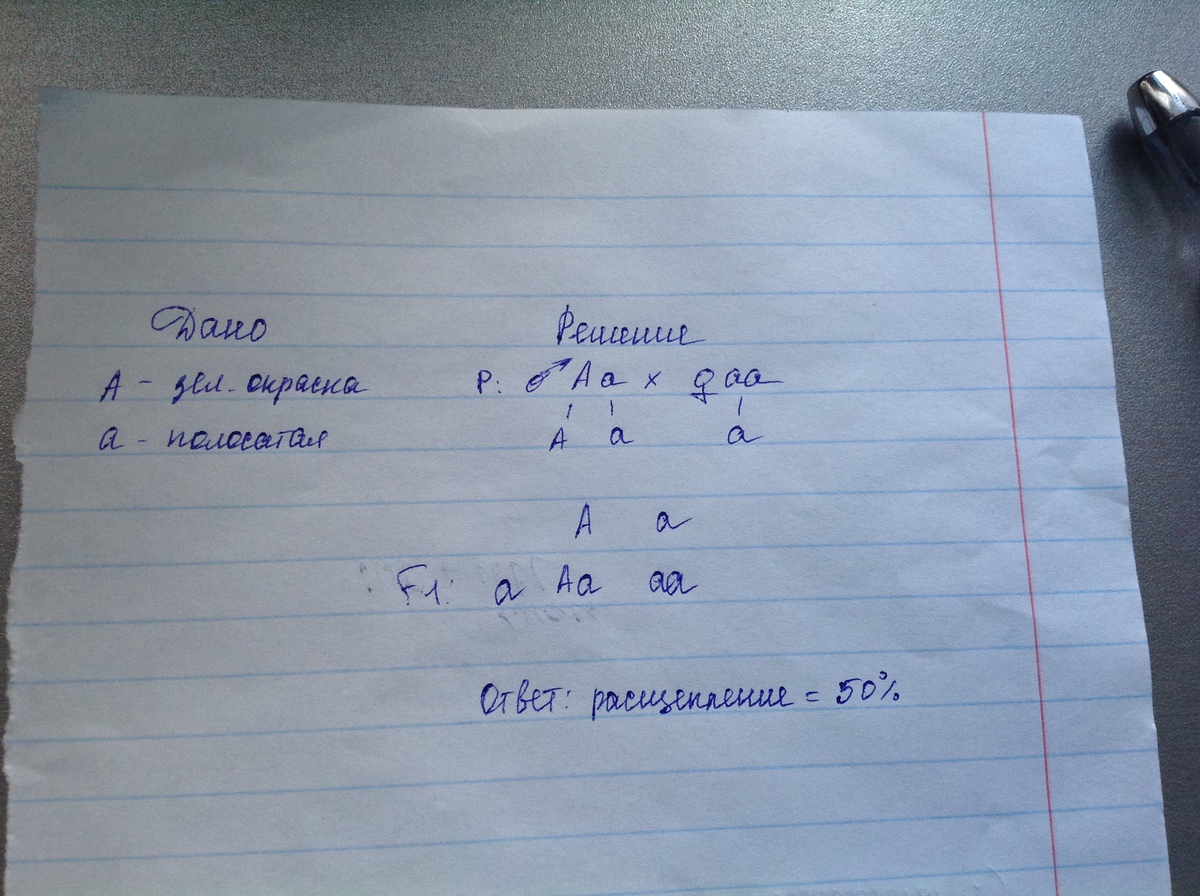 Дано
Решение
А - зел. окраска
P: ♂ Aa x ♀ aa
а - полосатая
A a a
A a
F1: a Aa aa
Ответ: расщепление = 50%